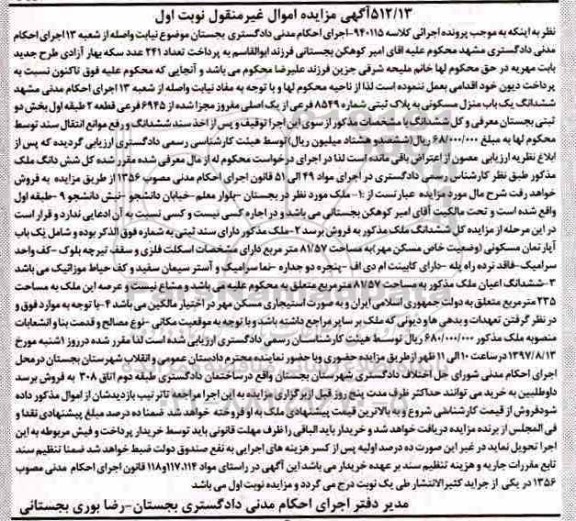 ۵۱۲/۱۳آگهی مزایده اموال غیرمنقول نوبت اول
نظر به اینکه به موجب پرونده اجرائی کلاسه ۹۴۰۱۱۵-اجرای احکام مدنی دادگستری بجستان موضوع نیابت واصله از شعبه ۱۳ اجرای احکام
مدنی دادگستری مشهد محکوم علیه اقای امیر کوهکن بجستانی فرزند ابوالقاسم به پرداخت تعداد ۲۴۱ عدد سکه بهار آزادی طرح جدید
بابت مهریه در حق محکوم لها خانم ملیحه شرقی جزین فرزند علیرضا محکوم می باشد و آنجایی که محکوم علیه فوق تاکنون نسبت به
پرداخت دیون خود اقدامی بعمل ننموده است لذا از ناحیه محکوم لها و با توجه به مفاد نیابت واصله از شعبه ۱۳ اجرای احکام مدنی مشهد
ششدانگ یک باب منزل مسکونی به پلاک ثبتی شماره ۸۵۴۹ فرعی از یک اصلی مفروز مجزا شده از ۶۹۴۵ فرعی قطعه ۲ طبقه اول بخش دو
ثبتی بجستان معرفی و کل ششدانگ با مشخصات مذکور از سوی این اجرا توقیف و پس از اخذ سند ششدانگ و رفع موانع انتقال سند توسط
محکوم لها به مبلغ ۶۸۰/۰۰۰/۰۰۰ ریال(ششصد و هشتاد میلیون ریال)توسط هیئت کارشناسی رسمی دادگستری ارزیابی گردیده که پس از
ابلاغ نظریه ارزیابی مصون از اعتراض باقی مانده است لذا در اجرای درخواست محکوم له از مال معرفی شده مقرر شده کل شش دانگ ملک
مذکور طبق نظر کارشناس رسمی دادگستری در اجرای مواد ۴۹ الی ۵۱ قانون اجرای احکام مدنی مصوب ۱۳۵۶ از طریق مزایده به فروش
خواهد رفت شرح مال مورد مزایده عبارتست از :۱- ملک مورد نظر در بجستان -بلوار معلم-خیابان دانشجو -نبش دانشجو ۹ -طبقه اول
واقع شده است و تحت مالکیت آقای امیر کوهکن بجستانی می باشد و در اجاره کسی نیست و کسی نسبت به آن ادعایی ندارد و قرار است
در این مرحله از مزایده کل ششدانگ ملک مذکور به فروش برسد ۲-ملک مذکور دارای سند ثبتی به شماره فوق الذکر بوده و شامل یک باب
آپارتمان مسکونی (وضعیت خاص مسکن مهر)به مساحت ۸۱/۵۷ متر مربع دارای مشخصات اسکلت فلزی و سقف تیرچه بلوک -کف واحد
سرامیک-فاقد نرده راه پله -دارای کابینت ام دی اف -پنجره دو جداره -نما سرامیک و آستر سیمان سفید و کف حیاط موزائیک می باشد
۳-ششدانگ اعیان ملک مذکور به مساحت ۸۱/۵۷ مترمربع متعلق به محکوم علیه می باشد و مشاع نیست و عرصه این ملک به مساحت
۲۳۵ مترمربع متعلق به دولت جمهوری اسلامی ایران و به صورت استیجاری مسکن مهر در اختیار مالکین می باشد ۴-با توجه به موارد فوق و
در نظر گرفتن تعهدات و بدهی ها و دیونی که ملک بر سایر مراجع داشته باشد و با توجه به موقعیت مکانی -نوع مصالح و قدمت بنا و انشعابات
منصوبه ملک مذکور ۶۸۰/۰۰۰/۰۰۰ ریال توسط هیئت کارشناسان رسمی دادگستری ارزیابی شده است لذا مقرر شده در روز شنبه مورخ
۱۳۹۷/۸/۱۳ درساعت ۱۰ الی ۱۱ ظهر از طریق مزایده حضوری و با حضور نماینده محترم دادستان عمومی و انقلاب شهرستان بجستان در محل
اجرای احکام مدنی شورای حل اختلاف دادگستری شهرستان بجستان واقع درساختمان دادگستری طبقه دوم اتاق ۳۰۸ به فروش برسد
داوطلبین به خرید می توانند حداکثر ظرف مدت پنج روز قبل از برگزاری مزایده به این اجرا مراجعه تاتر تیب بازدیدشان از اموال مذکور داده
شودفروش از قیمت کارشناسی شروع و به بالاترین قیمت پیشنهادی ملک به او فروخته خواهد شد ضمنا ده درصد مبلغ پیشنهادی نقدا و
فی المجلس از برنده مزایده دریافت خواهد شد و خریدار باید الباقی را ظرف مهلت قانونی باید توسط خریدار پرداخت و فیش مربوطه به این
اجرا تحویل نماید در غیر این صورت ده درصد اولیه پس از کسر هزینه های اجرایی به نفع صندوق دولت ضبط خواهد شد ضمنا تنظیم سند
تابع مقررات جاریه و هزینه تنظیم سند بر عهده خریدار می باشد این آگهی در راستای مواد ۱۱۷،۱۱۴و۱۱۸ قانون اجرای احکام مدنی مصوب
۱۳۵۶ در یکی از جراید کثیرالانتشار طی یک نوبت درج می گردد و مزایده نوبت اول می باشد
مدیر دفتر اجرای احکام مدنی دادگستری بجستان-رضا بوری بجستانی